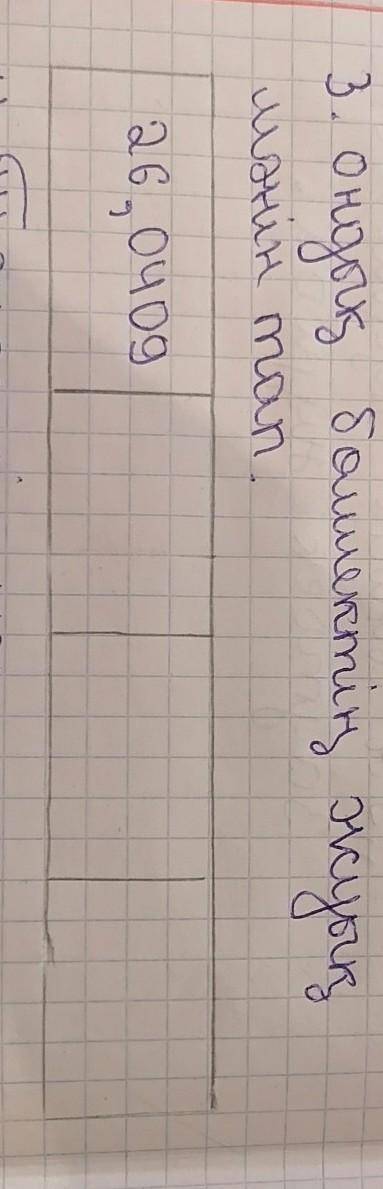 3. Ондық бөлшектің жуық
мәнін тап.
26,0409